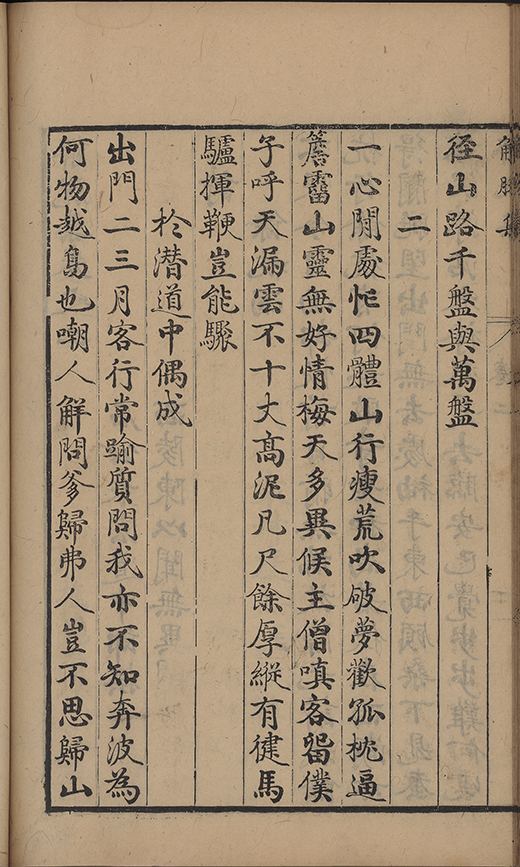 解脫集
徑山路千盤與萬盤
二
一心閒處忙四體山行瘦荒吹破夢歡孤枕逼
簷霤山靈無好情梅天多異候主僧嗔客留僕
子呼天漏雲不十丈高泥凡尺餘厚縱有健馬
驢揮鞭豈能驟
於潛道中偶成
出門二三月客行常踰質問我亦不知奔波為
何物越鳥也嘲人解問爹歸弗人豈不思歸山